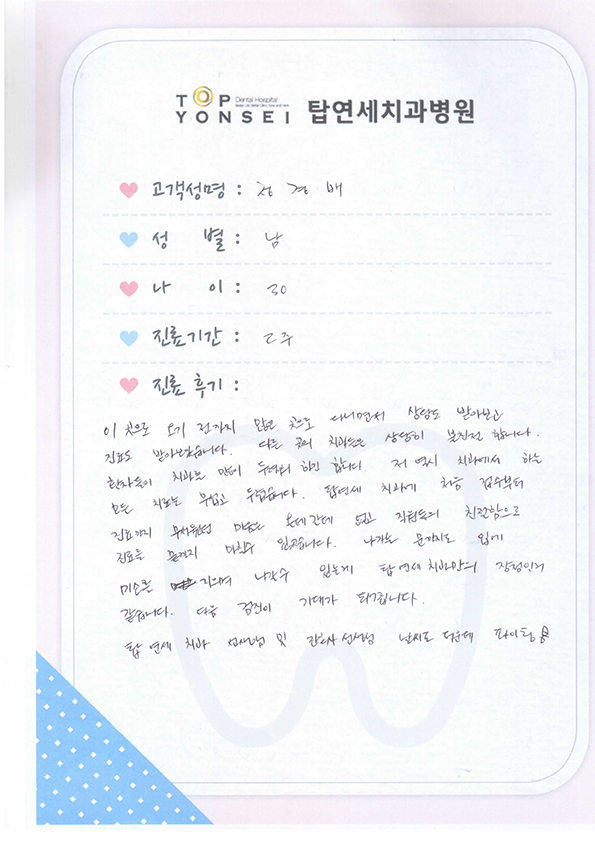 TOP Dental Hospital
YONSEI 탑연세치과병원
고객성명 : 정 경 배
성 별 : 남
나 이 : 30
진료기간 : 2주
진료 후기 :
이 곳으로 오기 전까지 많은 곳으로 다니면서 상담도 받아보고
진료도 받아보았습니다. 다른 곳의 치과들은 상당히 불친절 합니다.
환자들이 치과를 많이 두려워 하곤 합니다. 저 역시 치과에서 하는
모든 치료는 무섭고 두렵습니다. 탑연세 치과에 처음 접수부터
진료까지 무서웠던 마음은 온데간데 없고 직원들의 친절함으로
진료를 끝까지 마칠수 있었습니다. 나가는 문까지도 입에
미소를 지으며 나갈수 있는게 탑연세치과만의 장점인거
같습니다. 다음 검진이 기대가 되어집니다.
탑 연세 치과 선생님 및 간호사 선생님 날씨도 더운데 파이팅